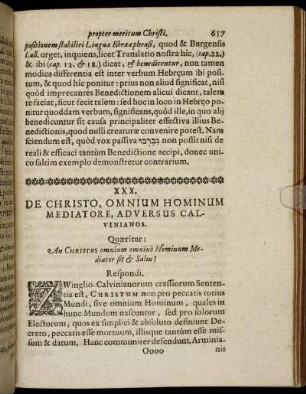 propter meritum Christi. 657
positionem stabiliri Linguæ Ebrææ phrasi, quod & Burgensis
l. all. urget, inquiens, licet Translatio nostra hîc, (cap. 22.)
& ibi (cap. 12. & 18.) dicat, & benedicentur, non tamen
modica differentia est inter verbum Hebræum ibi posi-
tum, & quod hîc ponitur: prius non aliud significat, ni-
si quòd imprecantes Benedictionem alicui dicant, talem
te faciat, sicut fecit talem: sed hoc in loco in Hebræo po-
nitur quoddam verbum, significans, quòd ille, in quo alij
benedicuntur sit causa principaliter effectiva illius Bene-
dictionis, quod nulli creaturæ convenire potest. Nam
sciendum est, quòd vox passiva non possit nisi de
reali & efficaci tantùm Benedictione accipi, donec uni-
co saltim exemplo demonstretur contrarium.
XXX.
DE CHRISTO, OMNIUM HOMINUM
MEDIATORE, ADVERSUS CAL-
VENIANOS.
Quæritur:
An CHRISTUS omnium omninò Hominum Me-
diator sit & Salus?
Respondi.
ZWinglio-Calvinianorum crassiorum Senten-
tia est, CHRISTUM non pro peccatis totius
Mundi, sive omnium Hominum, quales in
hunc Mundum nascuntur, sed pro solorum
Electorum, quos ex simplici & absoluto definiunt De-
creto, peccatis esse mortuum, illisque tantùm esse mis-
sum & datum. Hanc communiter defendunt, Arminia-
Oooo nis